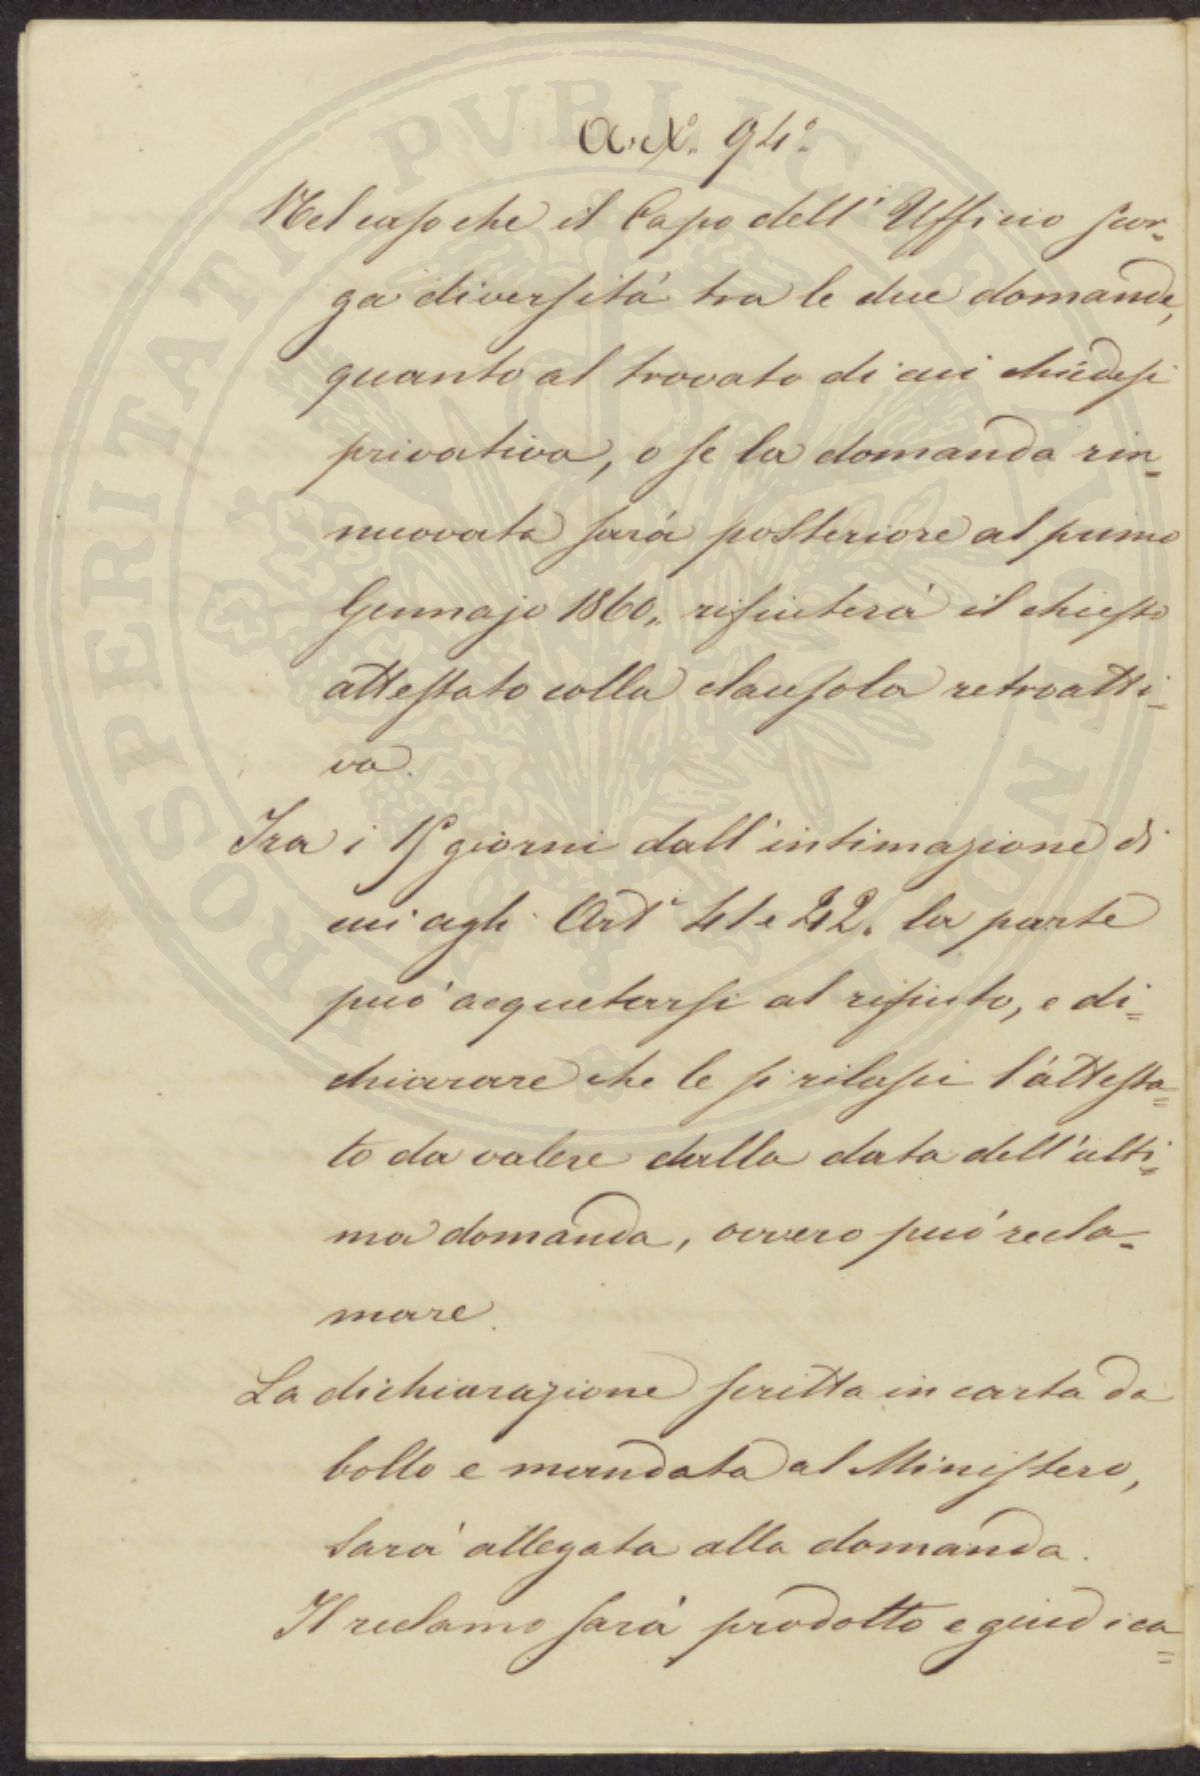 PROSPERITATI PUBLICAE AUGENDAE
A.X°. 94°.
Nel caso che il Capo dell'Ufficio scor-
ga diversità tra le due domande,
quanto al trovato di cui chiedesi
privativa, o se la domanda rin-
nuovata sarà posteriore al primo
Gennajo 1860, rifiuterà il chiesto
attestato colla clausola retroatti-
va.
Fra i 15 giorni dall'intimazione di
cui agli Art.i 41 e 42. la parte
può acquetarsi al rifiuto, e di-
chiarare che le si rilasci l'attesta-
to da valere dalla data dell'ulti-
ma domanda, ovvero può recla-
mare.
La dichiarazione scritta in carta da
bollo e mandata al Ministero,
sarà allegata alla domanda.
Il reclamo sarà prodotto e giudica-